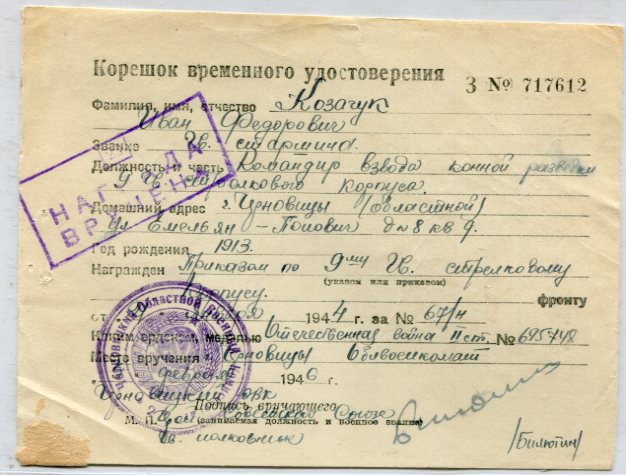 Корешок временного удостоверения З № 717612
Фамилия, имя, отчество Козачук
Иван Федорович
Звание Гв. старшина
Должность и часть Командир взвода конной разведки
9 гв. стрелкового корпуса.
Домашний адрес г. Черновицы (областной)
ул. Емельян-Попович д № 8 кв 9.
Год рождения 1913.
Награжден Приказом по 9му Гв. стрелковому
(указом или приказом)
Корпусу. фронту
от 1944 г. за № 67/н
Каким орденом, медалью Отечественная война II ст. № 695748
Место вручения Черновицы Облвоенкомат
февраля 1946 г.
Черновицкий ОВК
Подпись вручающего
Советского Союза
М. П. (занимаемая должность и военное звание)
гв. полковник /Билютин/
НАГРАДА
ВРУЧЕНА